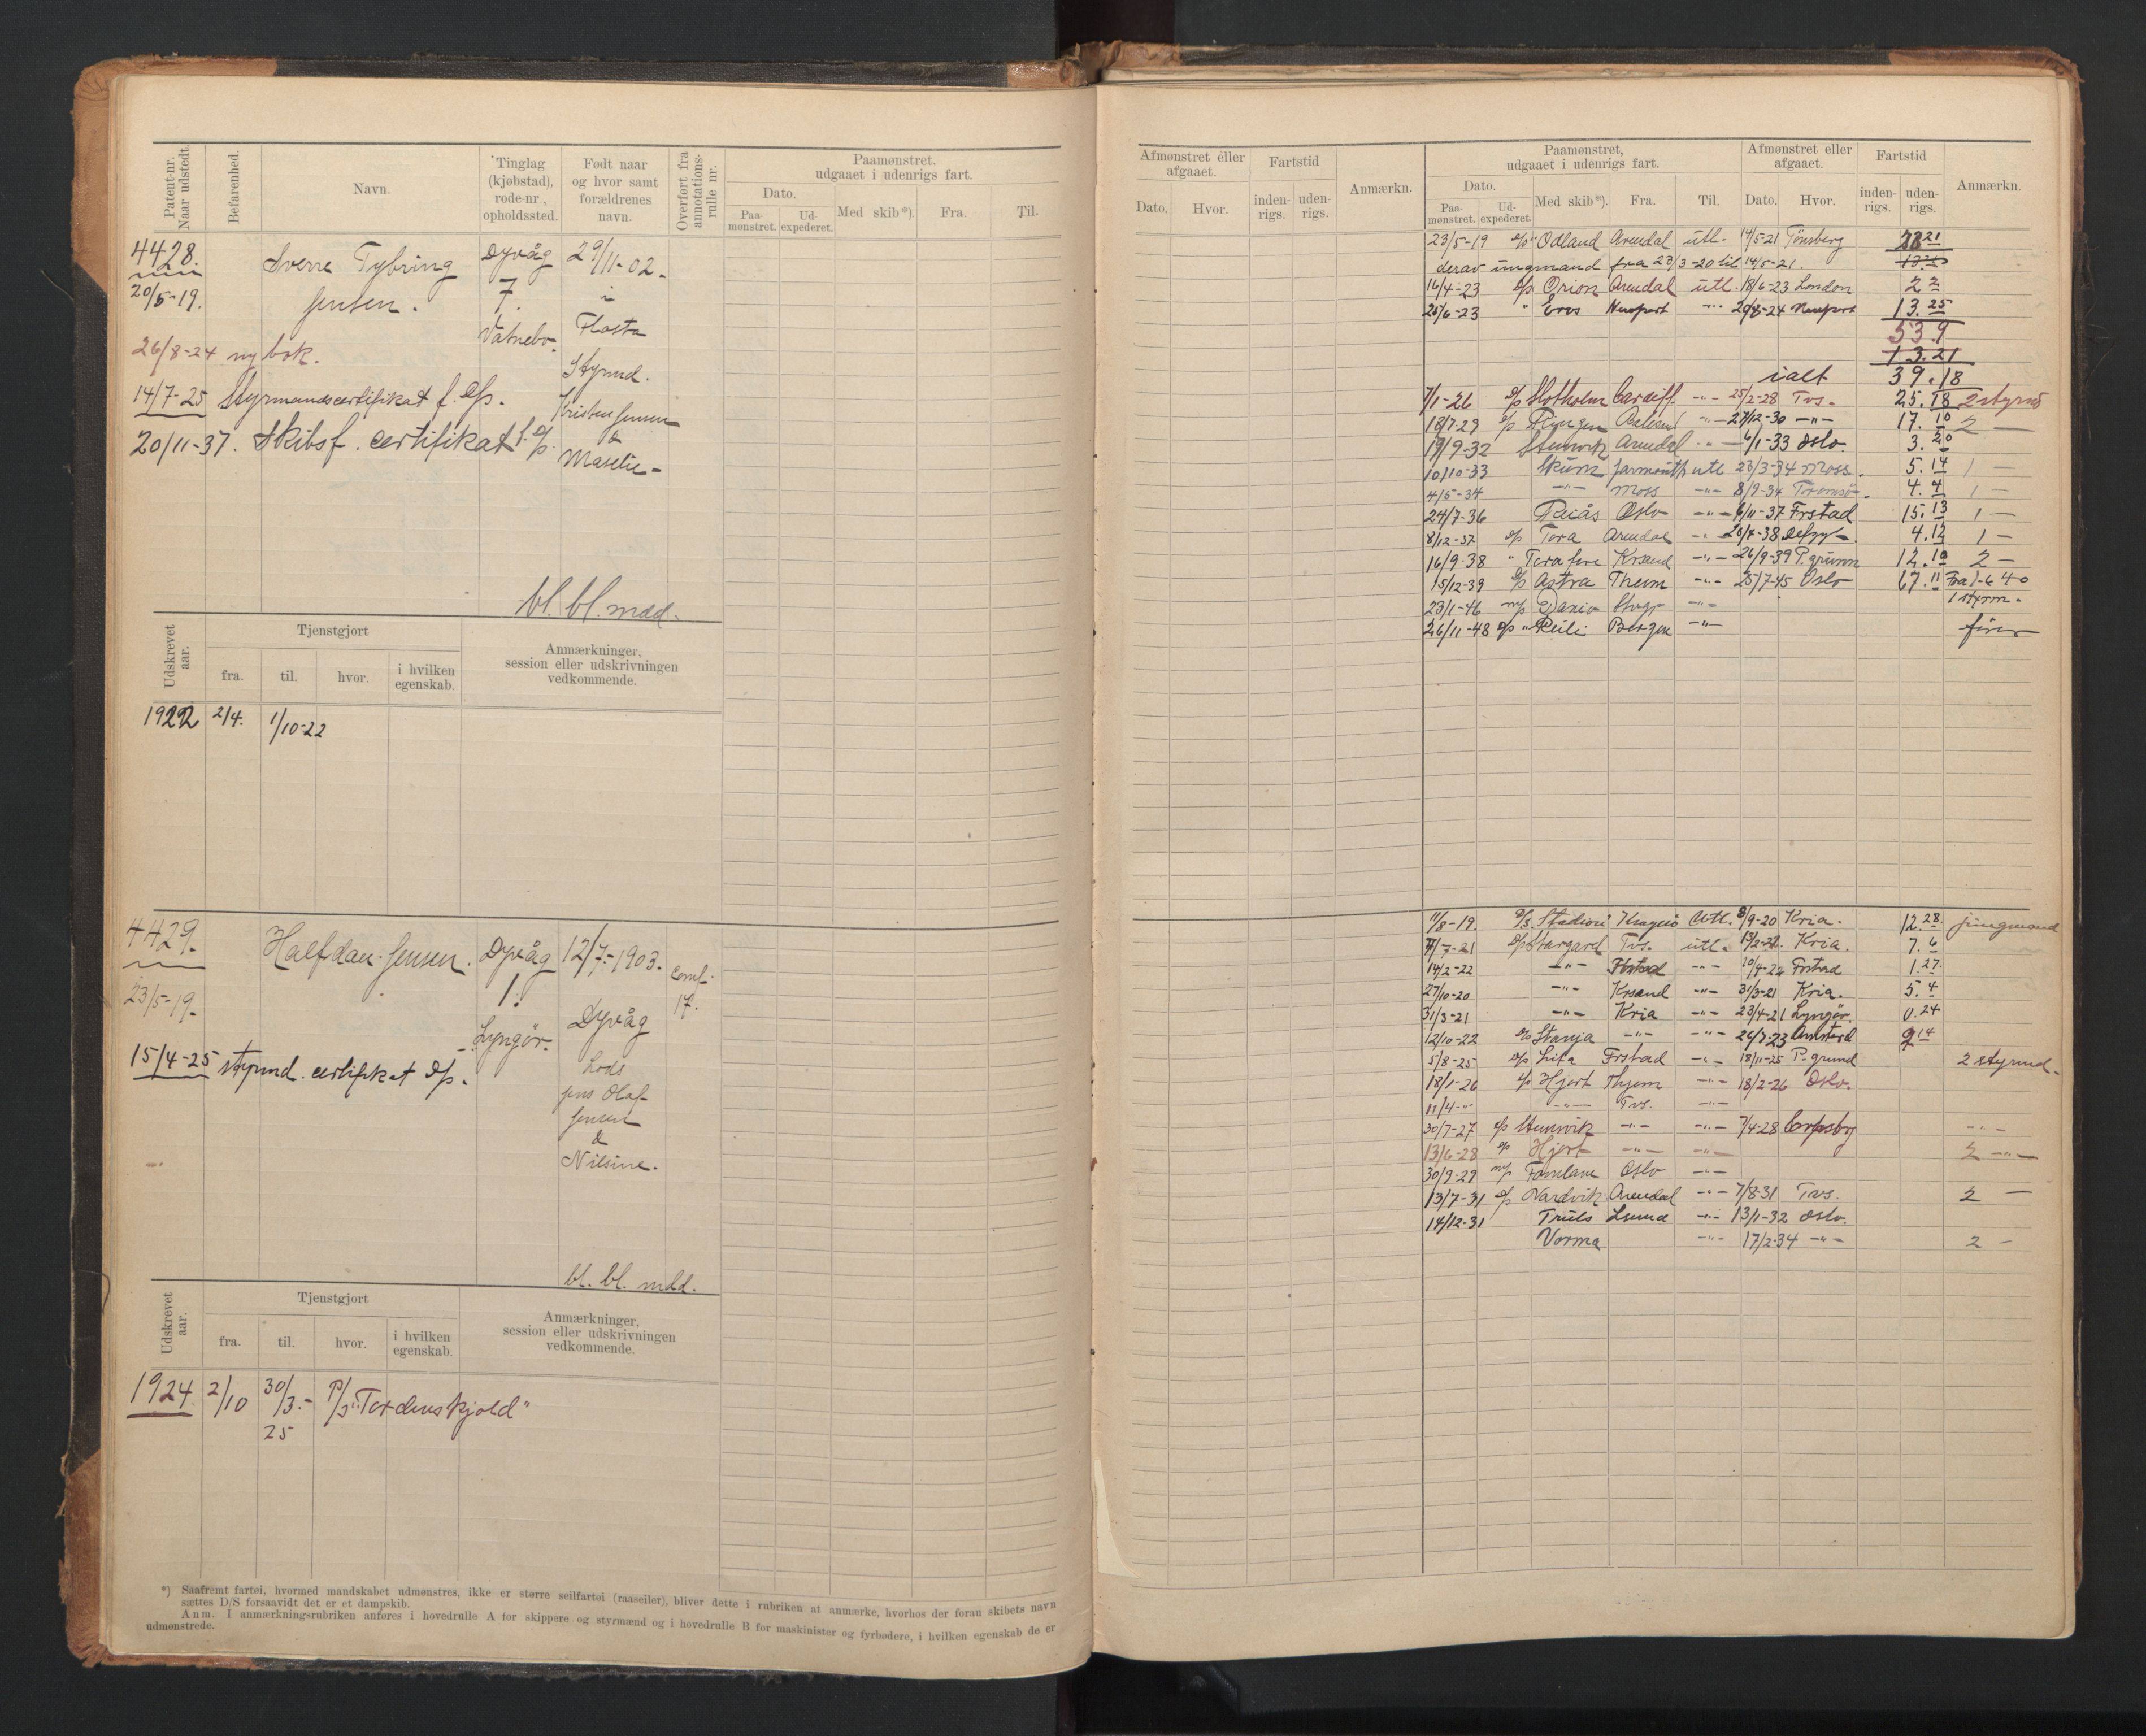 Patent-nr. Naar udstedt.
Befarenhed.
Navn.
Tinglag (kjøbstad), rode-nr, opholdssted.
Født naar og hvor samt forældrenes navn.
Overført fra annotations-rulle nr.
Paamønstret, udgaaet i udenrigs fart.
Dato.
Paa-mønstret.
Ud-expederet.
Med skib*).
Fra.
Til.
4428.
20/5-19.
Sverre Tybring
Jensen.
Dyvåg
7.
Vatnebo.
29/11-02.
i
Flosta
Styrmd.
Kristen Jensen
&
26/8-24 ny bok.
14/7-25 Styrmandscertifikat f. D/s.
20/11-37. Skibsf. certifikat f. D/s.
bl. bl. mdd.
Udskrevet aar.
Tjenstgjort
fra.
til.
hvor.
i hvilken egenskab.
Anmærkninger,
session eller udskrivningen
vedkommende.
1922 2/4. 1/10-22
4429.
23/5-19.
Halfdan Jensen.
Dyvåg
1.
Lyngør.
12/7-1903.
Dyvåg
Lods
Jens Olaf
Jensen
&
Nilsine.
17.
15/4-25 styrmd. certifikat D/s.
bl. bl. mdd.
Udskrevet aar.
Tjenstgjort
fra.
til.
hvor.
i hvilken egenskab.
Anmærkninger,
session eller udskrivningen
vedkommende.
1924 2/10 30/3.- P/s "Tordenskjold"
25
*) Saafremt fartøi, hvormed mandskabet udmønstres, ikke er større seilfartøi (raaseiler), bliver dette i rubriken at anmærke, hvorhos der foran skibets navn
sættes D/S forsaavidt det er et dampskib.
Anm. I anmærkningsrubriken anføres i hovedrulle A for skippere og styrmænd og i hovedrulle B for maskinister og fyrbødere, i hvilken egenskab de er
udmønstrede.
Afmønstret eller afgaaet.
Dato.
Hvor.
Fartstid
inden-rigs.
uden-rigs.
Anmærkn.
Paamønstret,
udgaaet i udenrigs fart.
Dato.
Paa-mønstret.
Ud-expederet.
Med skib*).
Fra.
Til.
Afmønstret eller afgaaet.
Dato.
Hvor.
Fartstid
inden-rigs.
uden-rigs.
Anmærkn.
23/5-19 D/s Odland Arendal utl. 14/5-21 Tønsberg 21
derav ungmand fra 23/3-20 til 14/5-21.
16/4-23 D/s Orion Arendal utl. 18/6-23 London 2 2
25/6-23 " Eros Newport -"- 20/8-24 Newport 13. 25
53.9
13.21
ialt 39.18
7/1-26 D/s Slotholm Cardiff -"- 25/2-28 Tvs. 25. 18 2 styrmd
18/7-29 D/s -"- 27/12-30 -"- 17. 10 2 —
19/9-32 Stensvik Arendal -"- 4/1-33 Oslo. 3. 20
10/10-33 Jarmouth utl 23/3-34 Moss. 5. 14 1 —
4/5-34 -"- Moss -"- 8/9-34 Tromsø. 4. 4 1 —
24/7-36 Reiås Oslo -"- 6/11-37 Frstad 15. 13 1 —
8/12-37 D/s Tora Arendal -"- 20/4-38 4. 12 1 —
16/9-38 " Krsand -"- 26/9-39 P.grunn 12. 10 2 —
15/12-39 D/s Astra -"- 25/7-45 Oslo 67. 11 Fra 1-6 40
1 styrm.
23/1-46 m/s -"-
26/11-48 D/s Bergen -"- fører
11/8-19. D/s. Stadion Kragerø Utl. 8/9-20 Kria. 12. 28. jungmand
D/s Stargard Tvs. utl. Kria. 7. 6
14/2-22 -"- Frstad -"- 20/4-22 Frstad 1. 27.
27/10-20 -"- Krsand -"- 31/3-21 Kria. 5. 4
31/3-21 -"- Kria -"- 23/4-21 Lyngør. 0. 24
12/10-22 D/s Stanja -"- -"- 26/7-23 Amsterd 9 14
5/8-25 D/s Frstad -"- 18/11-25 P-grund 2 styrmd.
18/1-26 D/s Hjort -"- 18/2-26 Oslo.
11/4-"- -"- Tvs. -"-
30/7-27 D/s Stensvik -"- -"- 7/4-28 Sarpsbg -"-
13/6-28 D/s Hjort -"- -"- 2 -"-
30/9-29 m/s Oslo -"-
13/7-31 D/s Nardvik Arendal -"- 7/8-31 Tvs. 2 —
14/12-31 Truls -"- 13/1-32 Oslo.
Vorma -"- 17/2-34 -"- 2 —